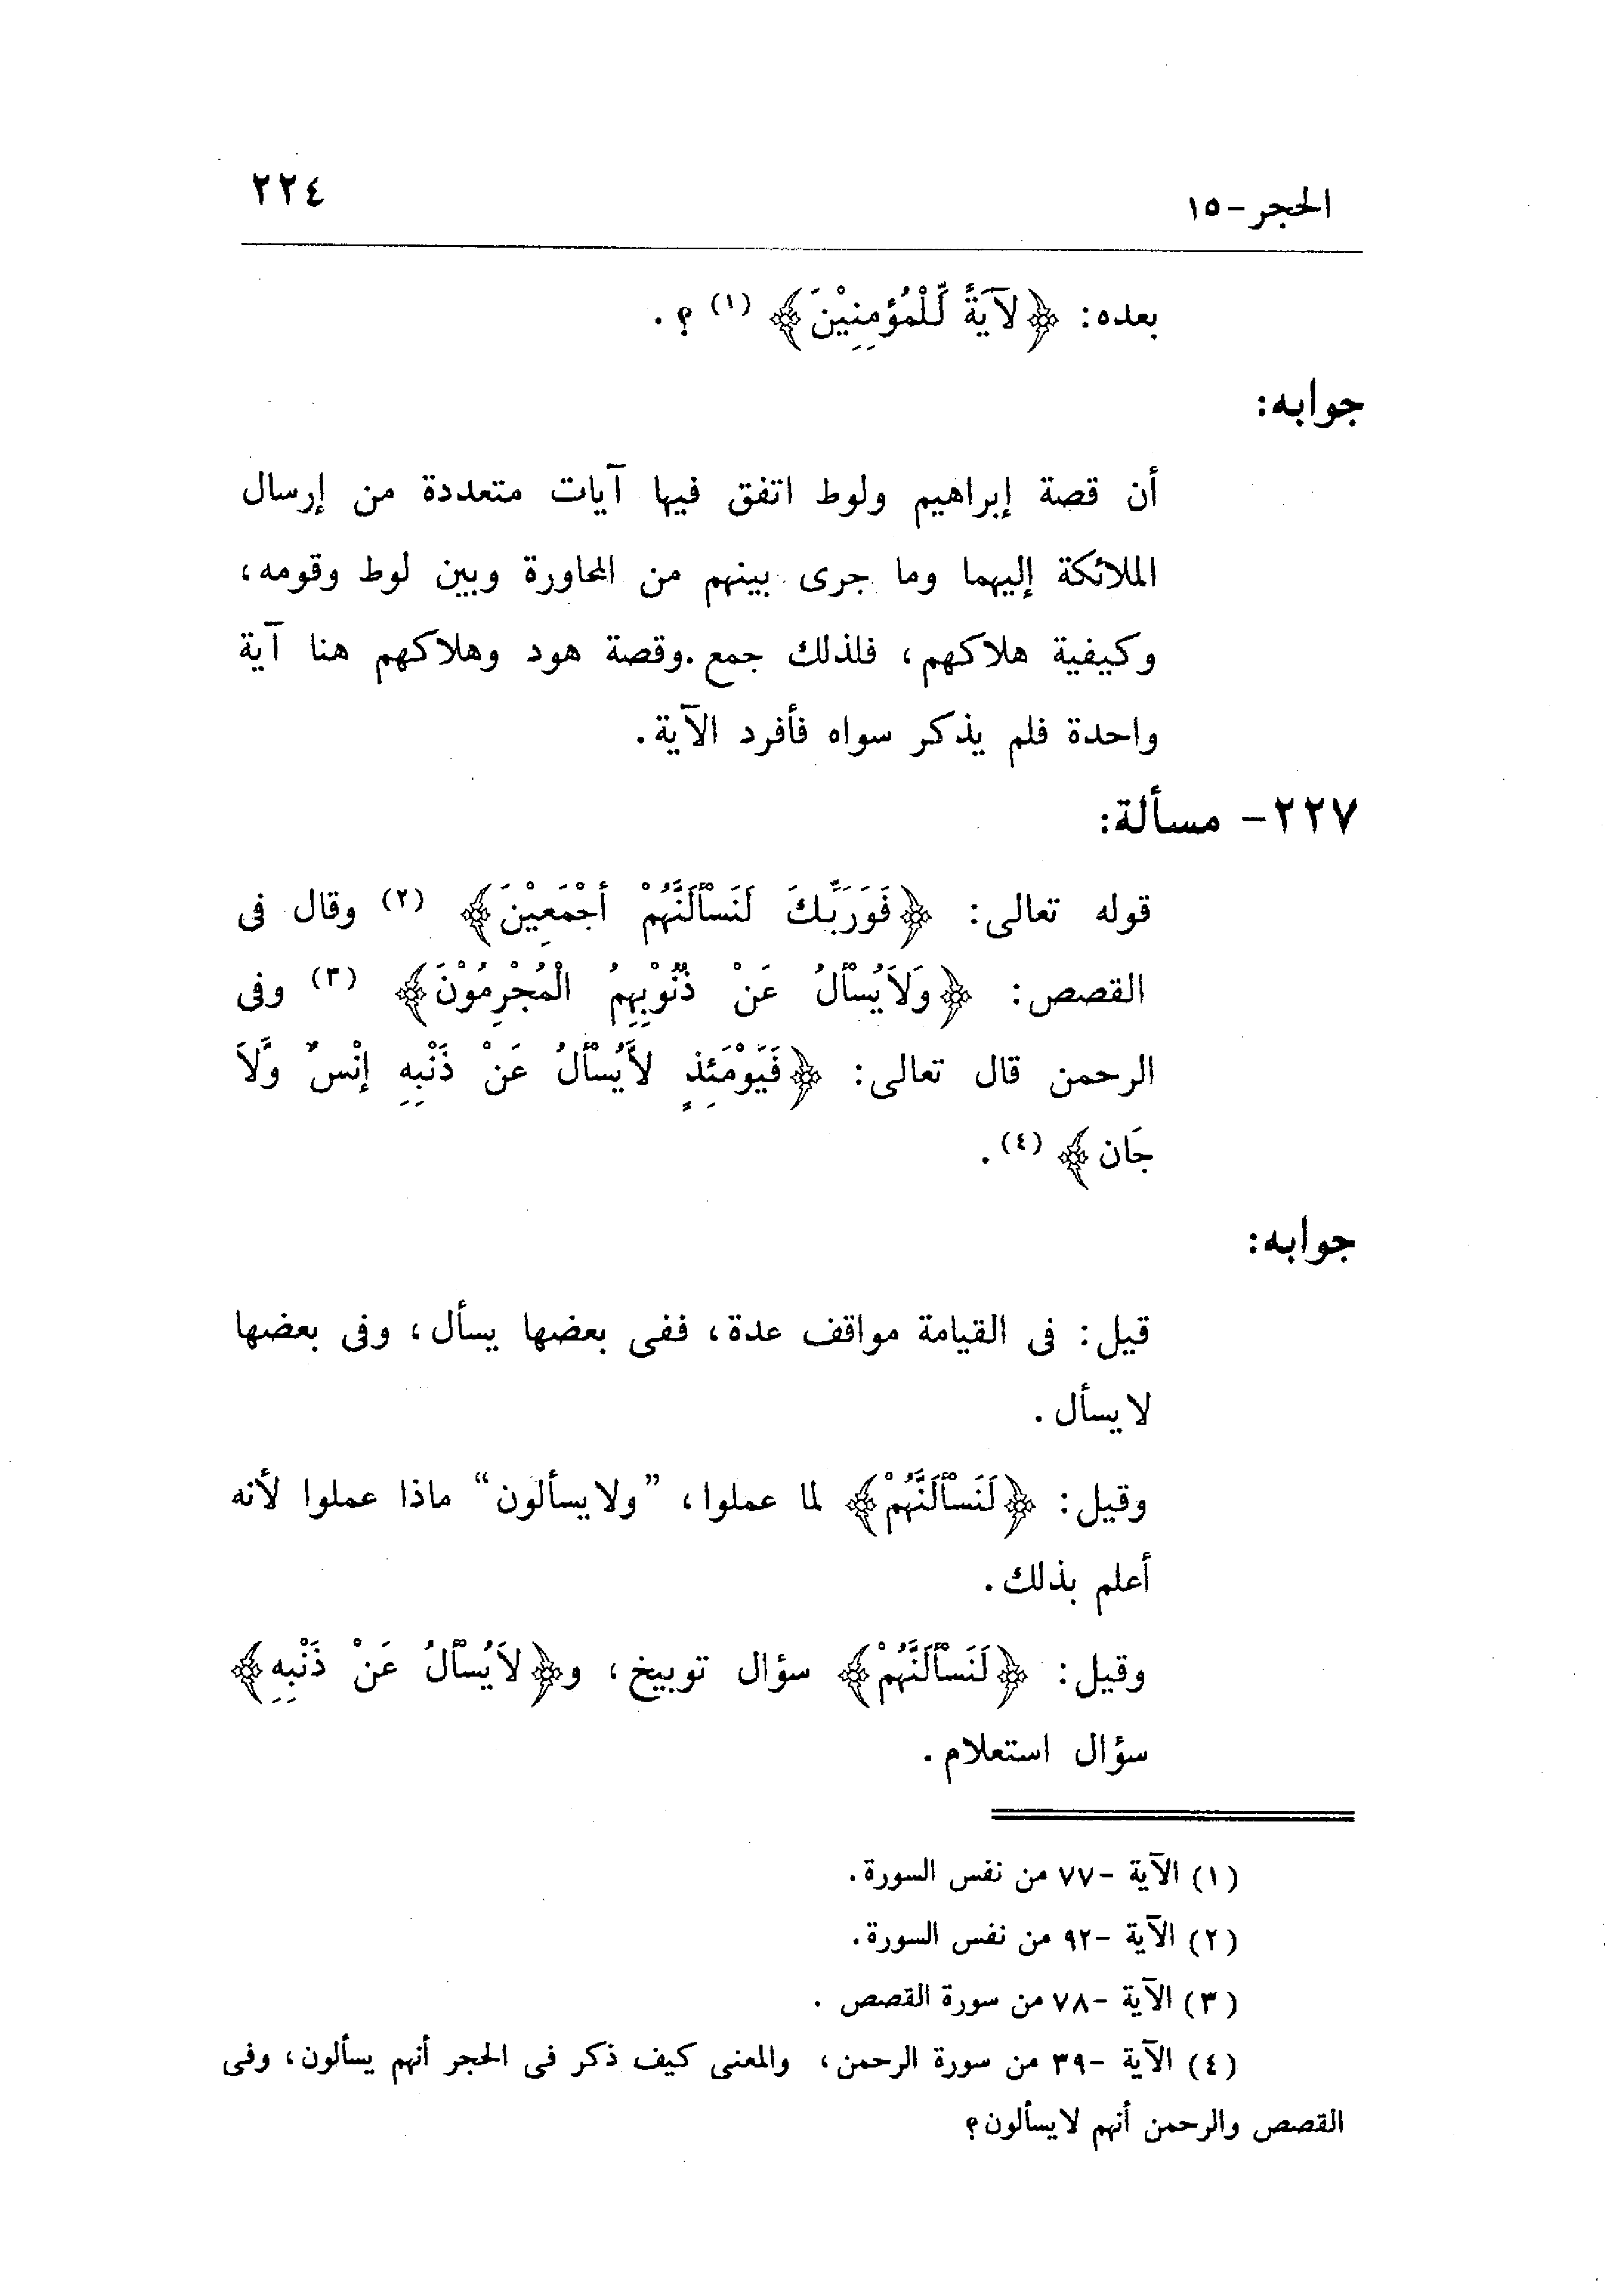 الحجر-١٥
٢٢٤
بعده: ﴿لآيَةً لِّلْمُؤمِنِيْنَ﴾ (١) ؟ .
جوابه:
أن قصة إبراهيم ولوط اتفق فيها آيات متعددة من إرسال
الملائكة إليهما وما جرى بينهم من المحاورة وبين لوط وقومه،
وكيفية هلاكهم، فلذلك جمع. وقصة هود وهلاكهم هنا آية
واحدة فلم يذكر سواه فأفرد الآية.
٢٢٧- مسألة:
قوله تعالى: ﴿فَوَرَبِّكَ لَنَسْأَلَنَّهُمْ أجْمَعِيْنَ﴾ (٢) وقال فى
القصص: ﴿وَلاَيُسْألُ عَنْ ذُنُوْبِهِمُ الْمُجْرِمُوْنَ﴾ (٣) وفى
الرحمن قال تعالى: ﴿فَيَوْمَئِذٍ لاَّيُسْألُ عَنْ ذَنْبِهِ إنْسٌ وَّلاَ
جَان﴾ (٤) .
جوابه:
قيل: فى القيامة مواقف عدة، ففى بعضها يسأل، وفى بعضها
لايسأل .
وقيل: ﴿لَنَسْأَلَنَّهُمْ﴾ لما عملوا، ”ولايسألون“ ماذا عملوا لأنه
أعلم بذلك.
وقيل: ﴿لَنَسْأَلَنَّهُمْ﴾ سؤال توبيخ، و﴿لاَيُسْألُ عَنْ ذَنْبِهِ﴾
سؤال استعلام.
(١) الآية -٧٧ من نفس السورة.
(٢) الآية -٩٢ من نفس السورة.
(٣) الآية -٧٨ من سورة القصص .
(٤) الآية -٣٩ من سورة الرحمن، والمعنى كيف ذكر فى الحجر أنهم يسألون، وفى
القصص والرحمن أنهم لايسألون؟